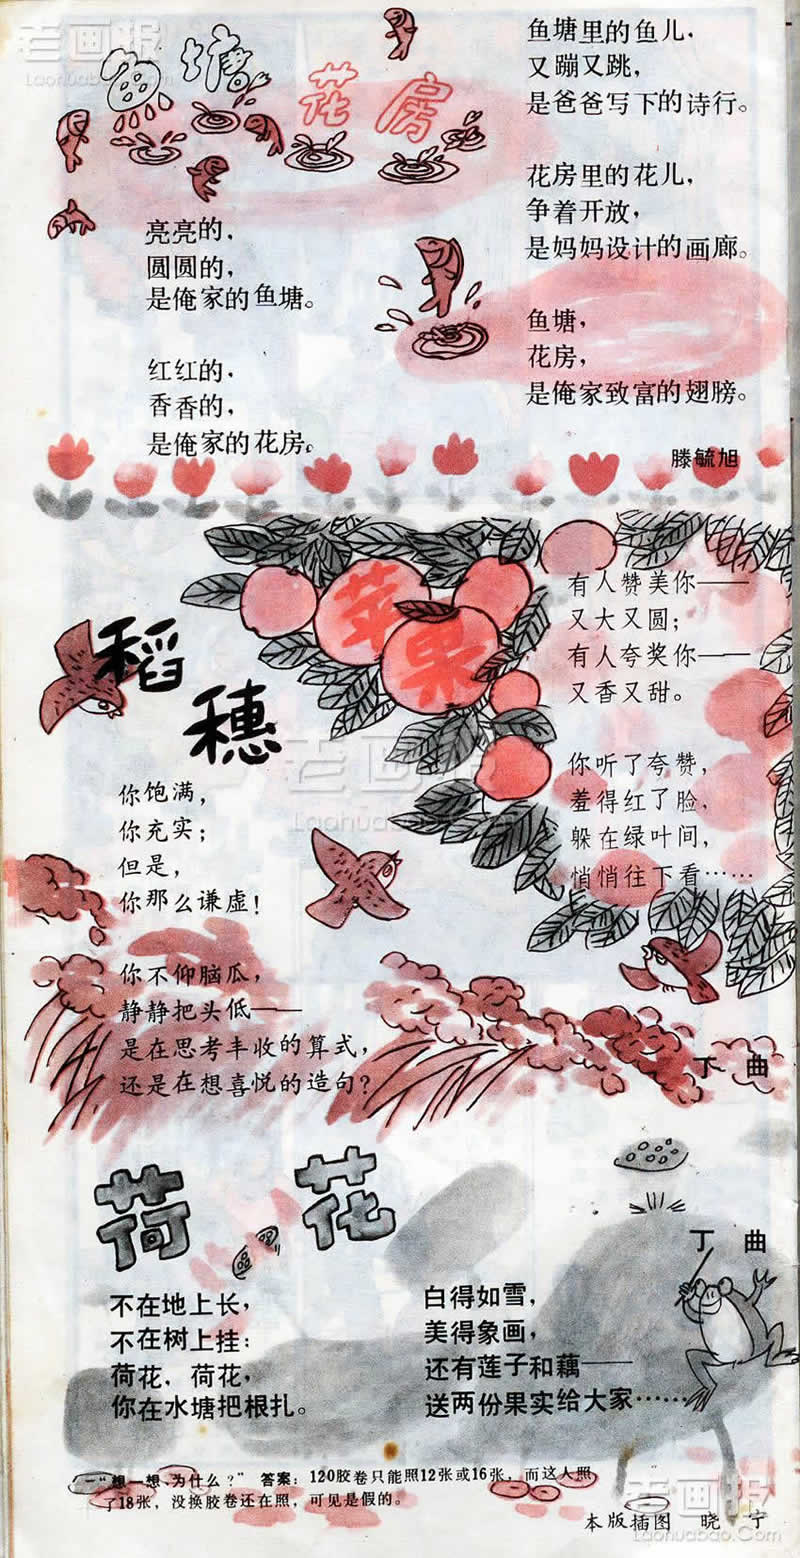 老画报
Laohuabao.com
鱼塘 花房
亮亮的，
圆圆的，
是俺家的鱼塘。
红红的，
香香的，
是俺家的花房。
鱼塘里的鱼儿，
又蹦又跳，
是爸爸写下的诗行。
花房里的花儿，
争着开放，
是妈妈设计的画廊。
鱼塘，
花房，
是俺家致富的翅膀。
滕毓旭
稻穗
你饱满，
你充实；
但是，
你那么谦虚！
你不仰脑瓜，
静静把头低——
是在思考丰收的算式，
还是在想喜悦的造句？
苹果
有人赞美你——
又大又圆；
有人夸奖你——
又香又甜。
你听了夸赞，
羞得红了脸，
躲在绿叶间，
悄悄往下看……
丁 曲
老画报
Laohuabao.com
荷花
丁 曲
不在地上长，
不在树上挂：
荷花，荷花，
你在水塘把根扎。
白得如雪，
美得象画，
还有莲子和藕——
送两份果实给大家……
“想一想，为什么？” 答案：120胶卷只能照12张或16张，而这人照
了18张，没换胶卷还在照，可见是假的。
本版插图 晓 宁
老画报
Laohuabao.com